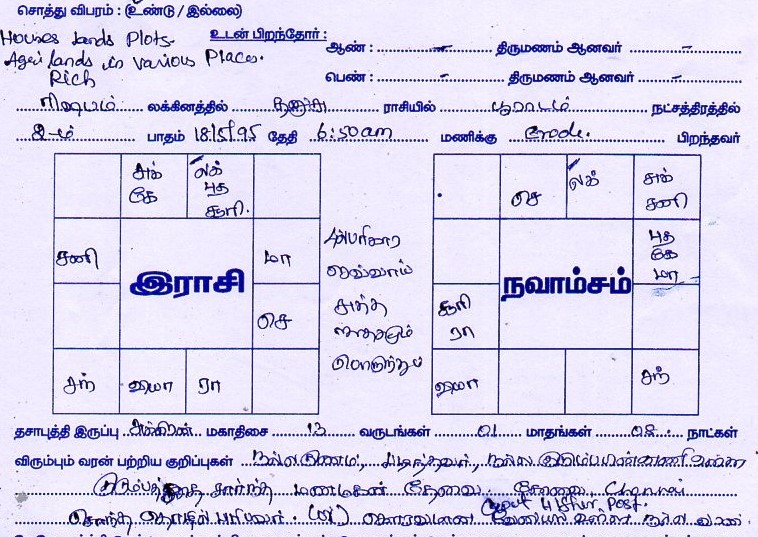 சொத்து விபரம் : (உண்டு / இல்லை)
Houses lands Plots.
Agri lands in Various Places.
Rich
உடன் பிறந்தோர் :
ஆண் : - திருமணம் ஆனவர் -
பெண் : - திருமணம் ஆனவர் -
ரிஷபம் லக்கினத்தில் தனுசு ராசியில் பூராடம் நட்சத்திரத்தில்
2-ம் பாதம் 18/5/95 தேதி 6:50am மணிக்கு Erode. பிறந்தவர்
சுக் கே
லக் புத சூரி.
சனி
மா
செ
சந்
வியா
ரா
இராசி
பரிகார
செவ்வாய்
சுத்த
ஜாதகமும்
பொருந்தும்
செ
லக்
சுக் சனி
புத கே மா
சூரி ரா
வியா
சந்
நவாம்சம்
தசாபுத்தி இருப்பு சுக்கிரன் மகாதிசை 13 வருடங்கள் 01 மாதங்கள் 08 நாட்கள்
விரும்பும் வரன் பற்றிய குறிப்புகள் நல்ல குணம், படித்தவர், நல்ல குடும்ப பின்னணி உள்ள
குடும்பத்தை சார்ந்த மணமகன் தேவை. கோவை, Chennai
சொந்த தொழில் புரிபவர் (or) கௌரவமான வேலையில் உள்ள நல்ல வரன்.
Govt Higher Post.